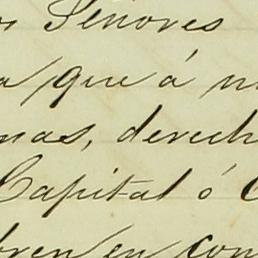 Señores
que á
mas, derech
Capital ó
en con